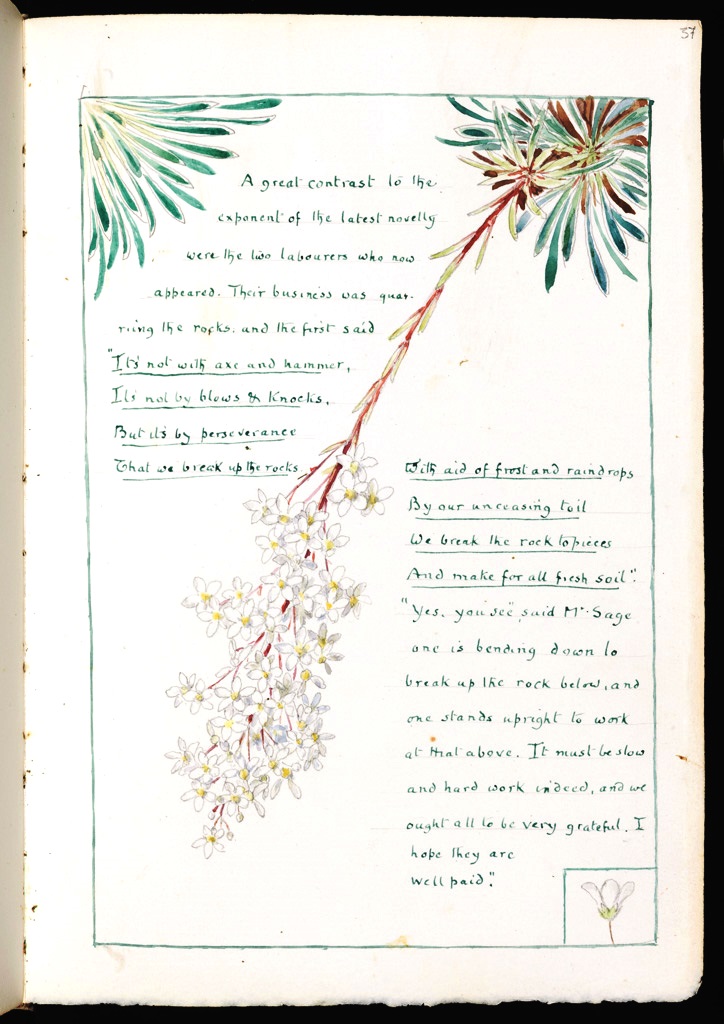 37
A great contrast to the
exponent of the latest novelty
were the two labourers who now
appeared. Their business was quar-
riing the rocks. and the first said
"It's not with axe and hammer,
It's not by blows & Knocks,
But it's by perseverance
That we break up the rocks
With aid of frost and raindrops
By our unceasing toil
We break the rock to pieces
And make for all fresh soil".
"Yes, you see", said Mr. Sage
one is bending down to
break up the rock below, and
one stands upright to work
at that above. It must be slow
and hard work indeed, and we
ought all to be very grateful. I
hope they are
well paid".